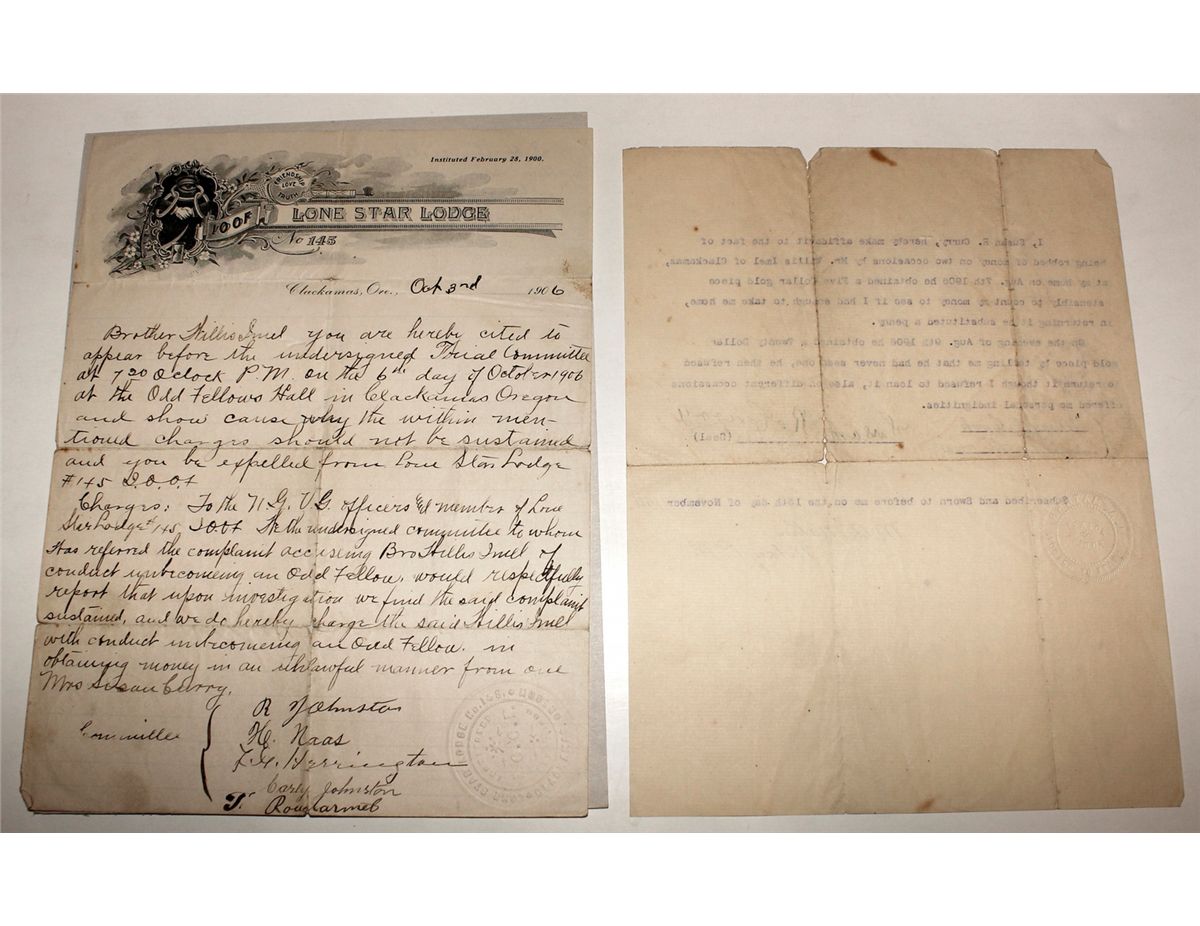 Instituted February 28, 1900.
FRIENDSHIP
LOVE
TRUTH
I.O.O.F.
LONE STAR LODGE
No 145
Clackamas, Ore., Oct 3rd 1906
Brother Willis Imel you are hereby cited to
appear before the undersigned Trial Committee
at 730 Oclock P.M. on the 6th day of October 1906
at the Odd Fellows Hall in Clackamas Oregon
and show cause why the within men-
tioned charges should not be sustained
and you be expelled from Lone Star Lodge
#145 I.O.O.F
Charges: To the N.G. V.G. officers & member of Lone
Star Lodge # 145, I.O.O.F We the undersigned committee to whom
was referred the complaint accuseing Bro Willis Imel of
conduct unbecomeing an Odd Fellow, would respectfully
report that upon investigation we find the said complaint
sustained, and we do hereby charge the said Willis Imel
with conduct unbecomeing an Odd Fellow. in
obtaining money in an unlawful manner from one
Mrs Susan Curry.
Committee
R Johnston
H. Naas
Herrington
Carl Johnston
I, Susan R. Curry, hereby make affidavit to the fact of
being robbed of money on two occasions by Mr. Willis Imel of Clackamas,
at my home on Aug. 7th 1906 he obtained a Five Dollar gold piece
stensibly to count my money to see if I had enough to take me home,
in returning it he substituted a penny.
On the evening of Aug. 8th 1906 he obtained a Twenty Dollar
gold piece by telling me that he had never seen one, he then refused
to return it though I refused to loan it, also on different occasions
offered me personal indignities.
Susan R. Curry (Seal)
Subscribed and Sworn to before me on the 15th day of November